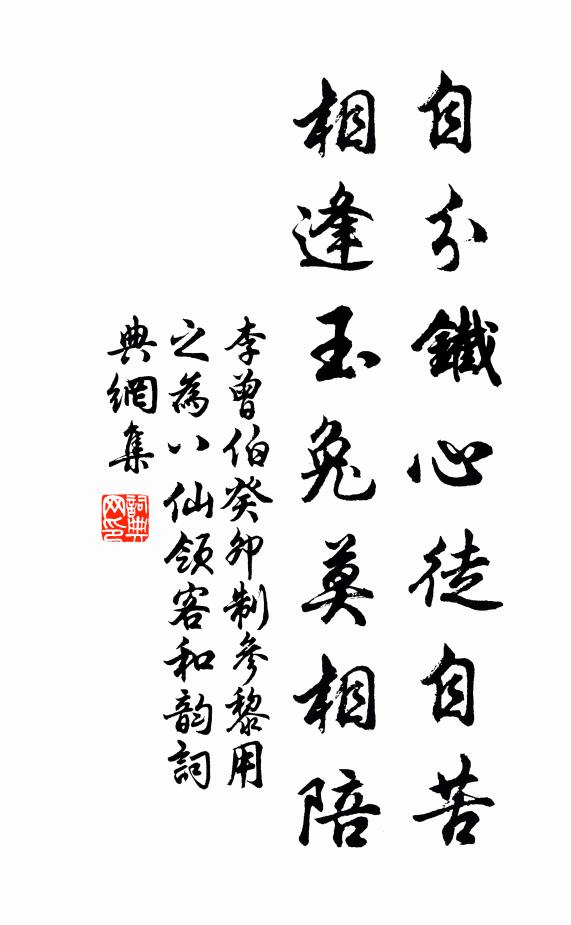 自分鐵心徒自苦
相逢玉兔莫相陪
李曾伯癸卯制參黎用
之為八仙領客和韵詞
典網集
詞典
网印